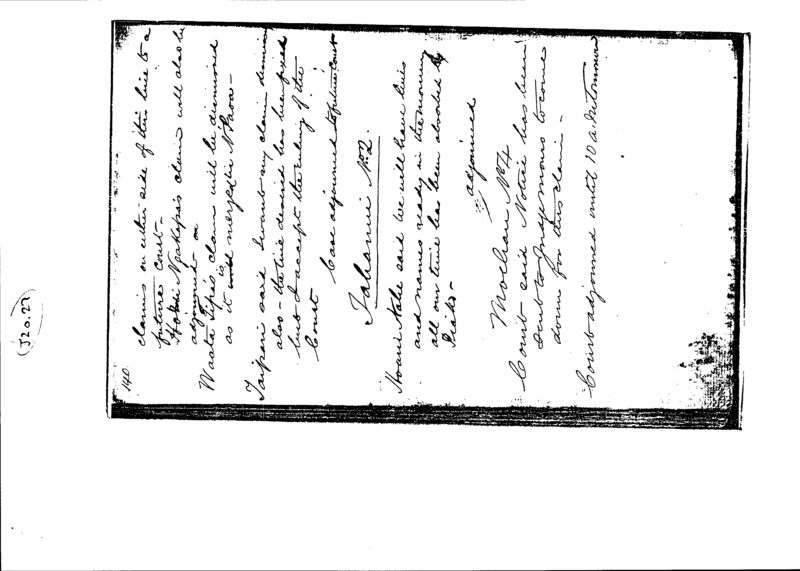 (J20.22)
140
claims on either side of this line to a
future court -
Hokii Ngakepa's claim will also be
adjourned -
Waata Tipa's claim will be dismissed
as it is merged in
Taipari said I want my claim
also - the line desired has been fixed
but I accept the ruling of the
Court
Case adjourned to future Court
Tahanui No. 2.
said we will have lines
and names ready in the morning
all our time has been absorbed by
adjourned
Moehau No 4
Court said Notice has been
sent to Judge to come
down for this claim -
Court adjourned until 10 a.m. tomorrow